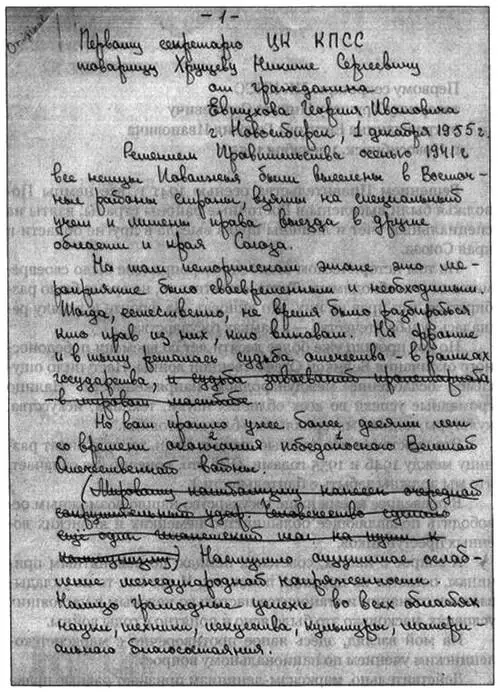 Original
- 1 -
Первому секретарю ЦК КПСС
товарищу Хрущеву Никите Сергеевичу
от гражданина
Евтухова Георгия Ивановича
Новосибирск, 1 декабря 1955 г.
Решением Правительства осенью 1941 г
все немцы Поволжья были выселены в Восточ-
ные районы страны, взяты на специальный
учет и лишены права выезда в другие
области и края Союза.
На том историческом этапе это ме-
роприятие было своевременным и необходимым.
Тогда, естественно, не время было разбираться
кто прав из них, кто виноват. На фронте
и в тылу решалась судьба отечества - в рамках
государства, и судьба завоеваний пролетариата
в мировом масштабе.
Но вот прошло уже более десяти лет
со времени окончания победоносного Великой
Отечественной войны.
(Мировому капитализму нанесен очередной
сокрушительный удар. Человечество сделало
еще один гигантский шаг на пути к
коммунизму) Наступило ощутимое ослаб-
ление международной напряженности.
Налицо громадные успехи во всех областях
науки, техники, искусства, культуры, матери-
ального благосостояния.